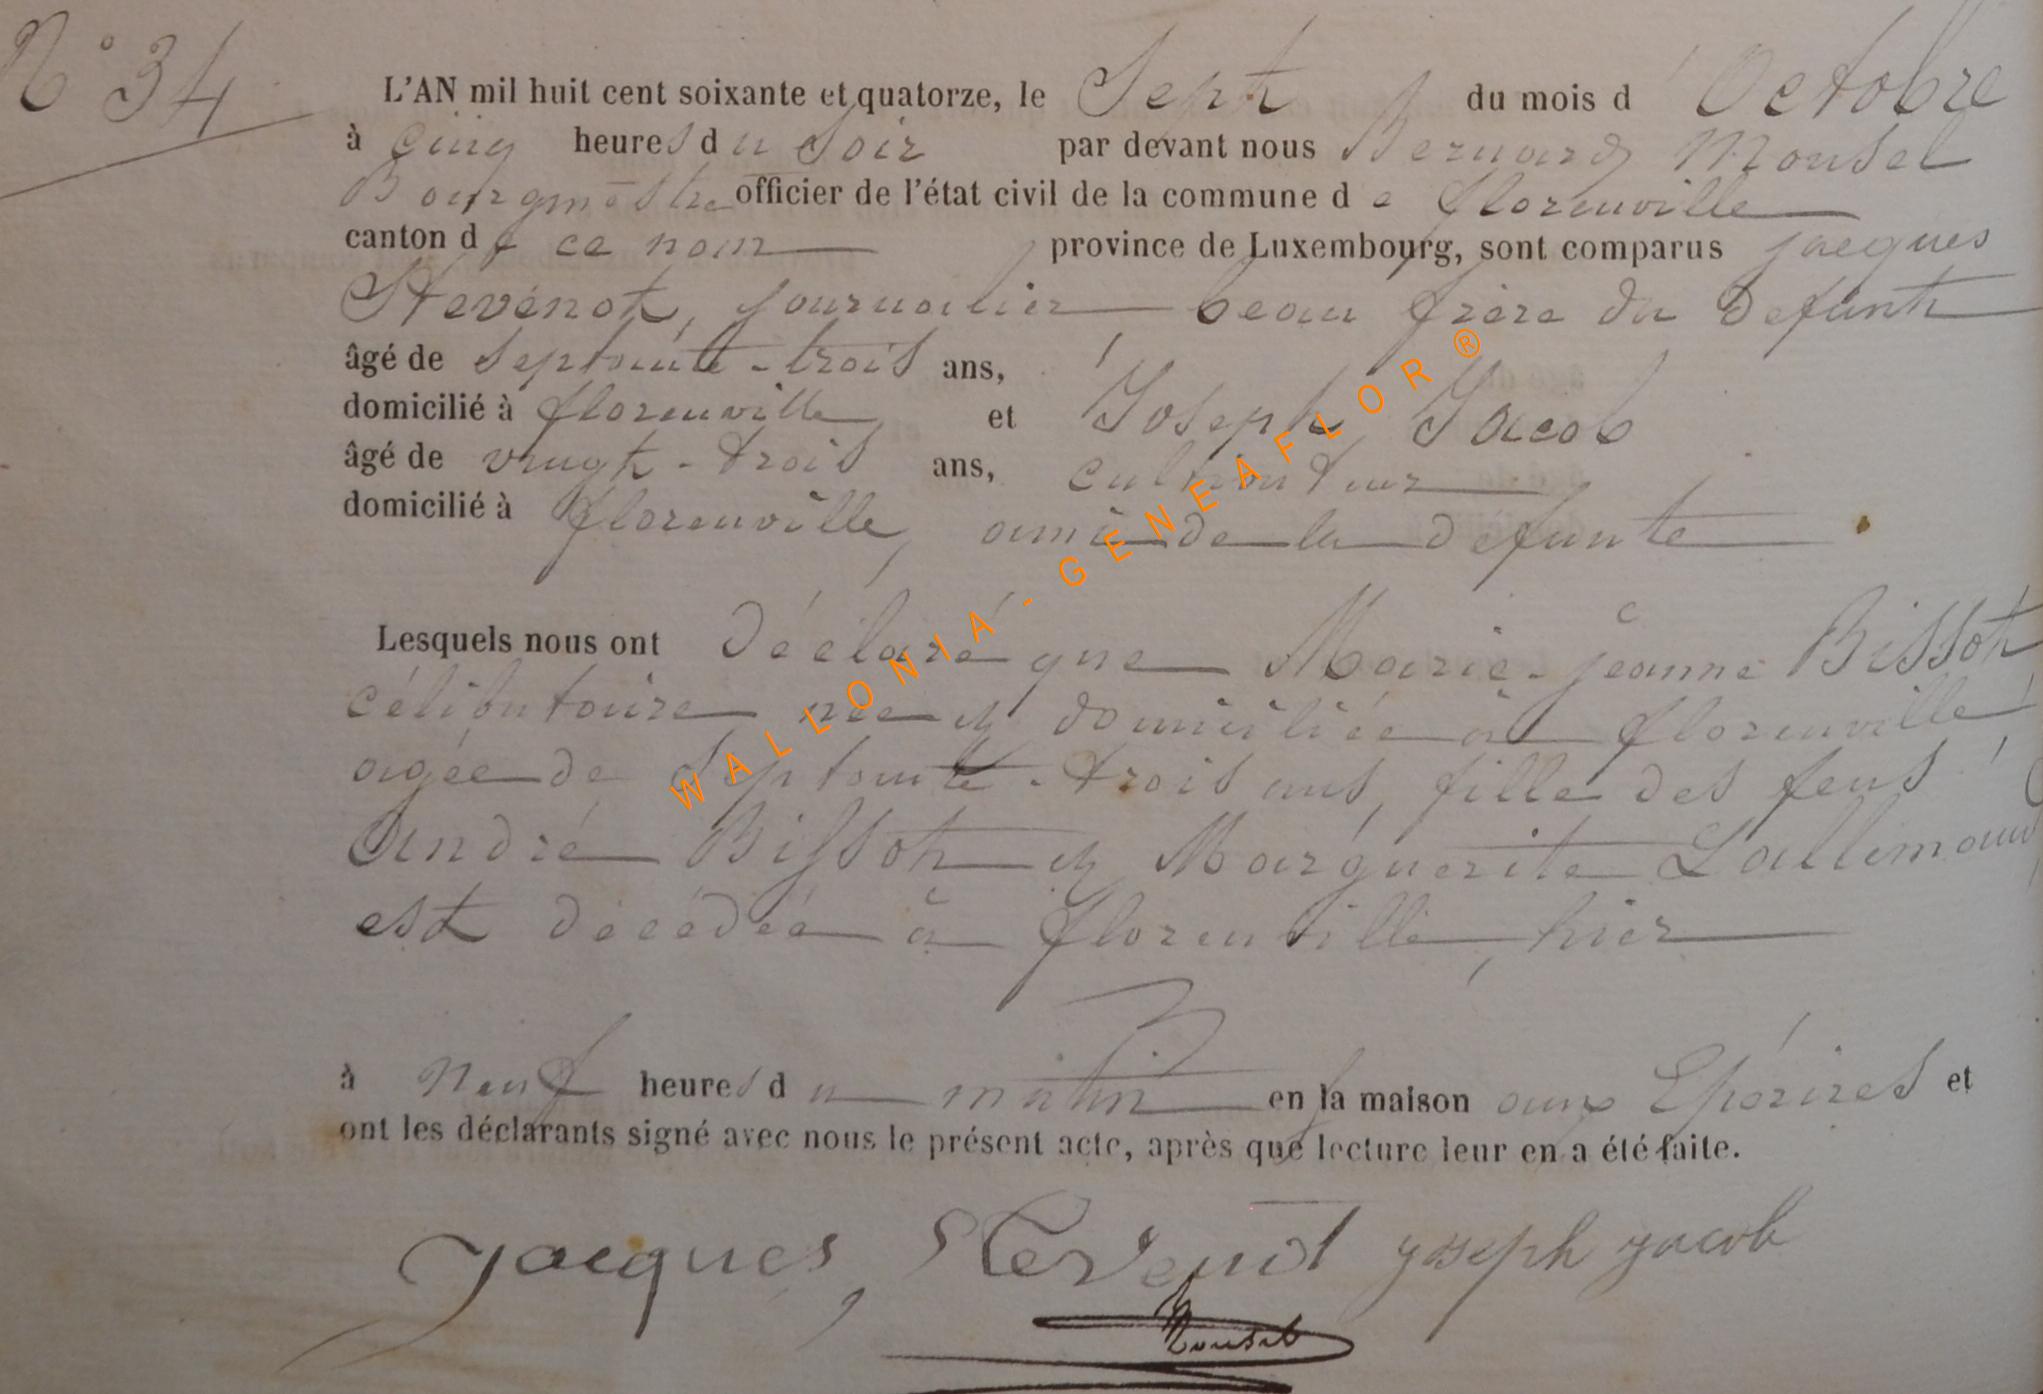 N° 34
L'AN mil huit cent soixante et quatorze, le Sept du mois d'Octobre
à cinq heures du Soir par devant nous Bernard Mousel
Bourgmestre officier de l'état civil de la commune de florenville
canton de ce nom province de Luxembourg, sont comparus jacques
Stevenot, journalier beau frère du defunt
âgé de septante-trois ans,
domicilié à florenville et Joseph Jacob
âgé de vingt-trois ans, cultivateur
domicilié à florenville, ami de la defunte
Lesquels nous ont déclaré que Marie-jeanne Bissot
célibataire née et domiciliée à florenville
agée de Septante-trois ans, fille des feus
André Bissot et Marguerite Lallemand
est décédée à florenville, hier
à neuf heures du matin en la maison aux Epérires et
ont les déclarants signé avec nous le présent acte, après que lecture leur en a été faite.
jacques Stevenot joseph jacob
Mousel
WALLONIA-GENEAFLOR®